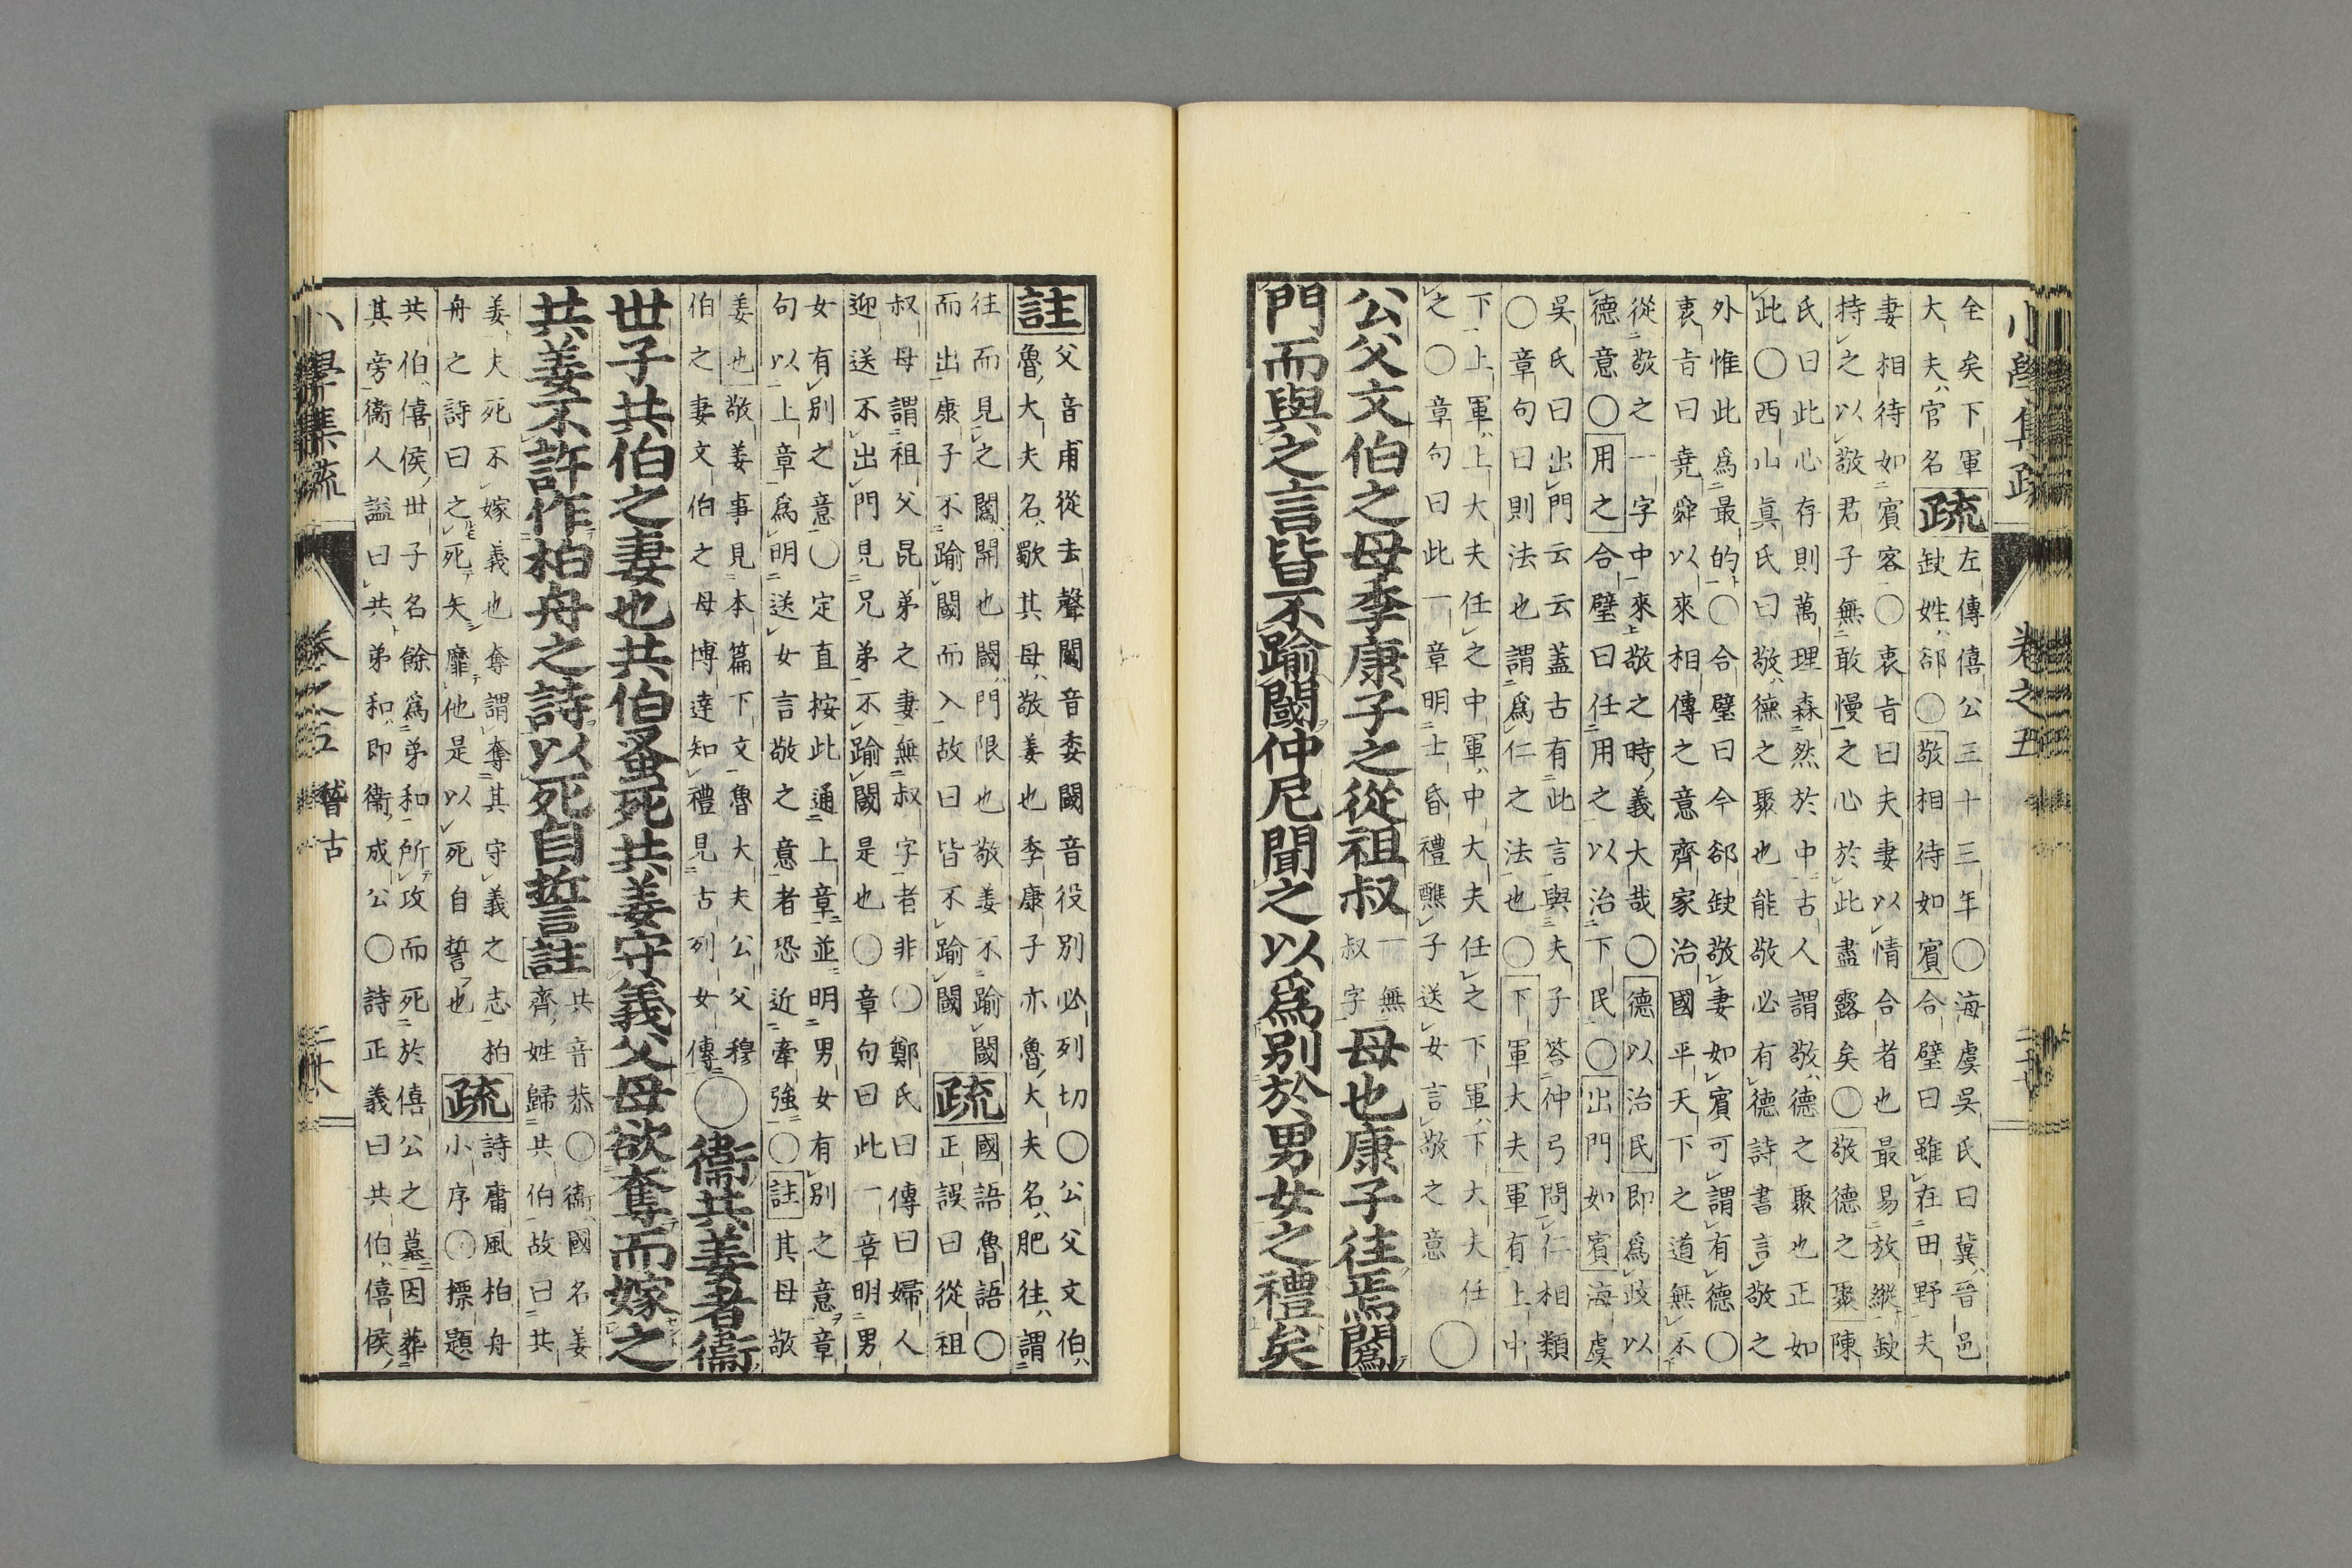 仝矣下軍
大夫官名疏左傳僖公三十三年〇海虞吳氏曰冀晉邑
缺姓郤〇敬相待如賓合璧曰雖在田野夫
妻相待如賓客〇衷旨曰夫妻以情合者也最易放縱缺
持之以敬君子無敢慢之心於此盡露矣〇敬德之聚陳
氏曰此心存則萬理森然於中古人謂敬德之聚也正如
此〇西山眞氏曰敬德之聚也能敬必有德詩書言敬之
外惟此爲最的〇合璧曰今郤缺敬妻如賓可謂有德〇
衷旨曰堯舜以來相傳之意齊家治國平天下之道無不
從敬之一字中來敬之時義大哉〇德以治民即爲政以
德意〇用之合璧曰任用之以治下民〇出門如賓海虞
吳氏曰出門云云蓋古有此言與夫子答仲弓問仁相類
〇章句曰則法也謂爲仁之法也〇下軍大夫軍有上中
下上軍上大夫任之中軍中大夫任之下軍下大夫任
之〇章句曰此一章明士昏禮醮子送女言敬之意〇
公父文伯之母季康子之從祖叔一無叔字母也康子往焉䦱
門而與之言皆不踰閾仲尼聞之以爲別於男女之禮矣
註父音甫從去聲䦱音委閾音役別必列切〇公父文伯
魯大夫名歜其母敬姜也季康子亦魯大夫名肥往謂
往而見之䦱開也閾門限也敬姜不踰閾
而出康子不踰閾而入故曰皆不踰閾疏國語魯語〇
正誤曰從祖
叔母謂祖父昆弟之妻無叔字者非〇鄭氏曰傳曰婦人
迎送不出門見兄弟不踰閾是也〇章句曰此一章明男
女有別之意〇定直按此通上章並明男女有別之意章
句以上章爲明送女言敬之意者恐近牽強〇註其母敬
姜也敬姜事見本篇下文魯大夫公父穆
伯之妻文伯之母博達知禮見古列女傳〇衞共姜者衞
世子共伯之妻也共伯蚤死共姜守義父母欲奪而嫁之
共姜不許作柏舟之詩以死自誓註共音恭〇衞國名姜
齊姓歸共伯故曰共
姜夫死不嫁義也奪謂奪其守義之志柏
舟之詩曰之死矢靡他是以死自誓也疏詩庸風柏舟
小序〇標題
共伯僖侯世子名餘爲弟和所攻而死於僖公之墓因葬
其旁衞人謚曰共弟和即衞成公〇詩正義曰共伯僖侯